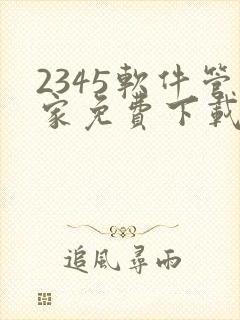 2345軟件管
家免費下載
追風尋雨